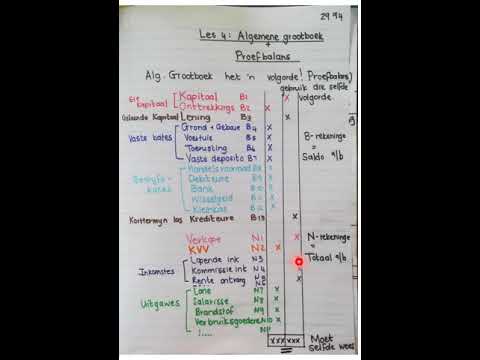 29 '94
Les 4: Algemene grootboek
+
Proefbalans
Alg. Grootboek het 'n volgorde! (Proefbalans)
gebruik die selfde
volgorde.
Eie kapitaal
Kapitaal B1 x
Onttrekkings B2 x
Lening B3 x
Vaste bates
Grond + Geboue B4 x
Voertuie B5 x
Toerusting B6 x
Vaste deposito B7 x
B-rekeninge
=
Saldo a/b
Handelsvoorraad B8 x
Debiteure B9 x
Bank B10 x
Wisselgeld B11 x
Kleinkas B12 x
Korttermyn las Krediteure B13 x
Verkope N1 x
KVV N2 x
N-rekeninge
=
Totaal a/b
Inkomste
Lopende ink N3
Kommissie ink N4
Rente ontvang N5 x
N6
Uitgawes
Lone N7 x
Salarisse N8 x
Brandstof N9 x
Verbruiksgoedere N10 x
!.... N11
xxx xxx
Moet
selfde wees